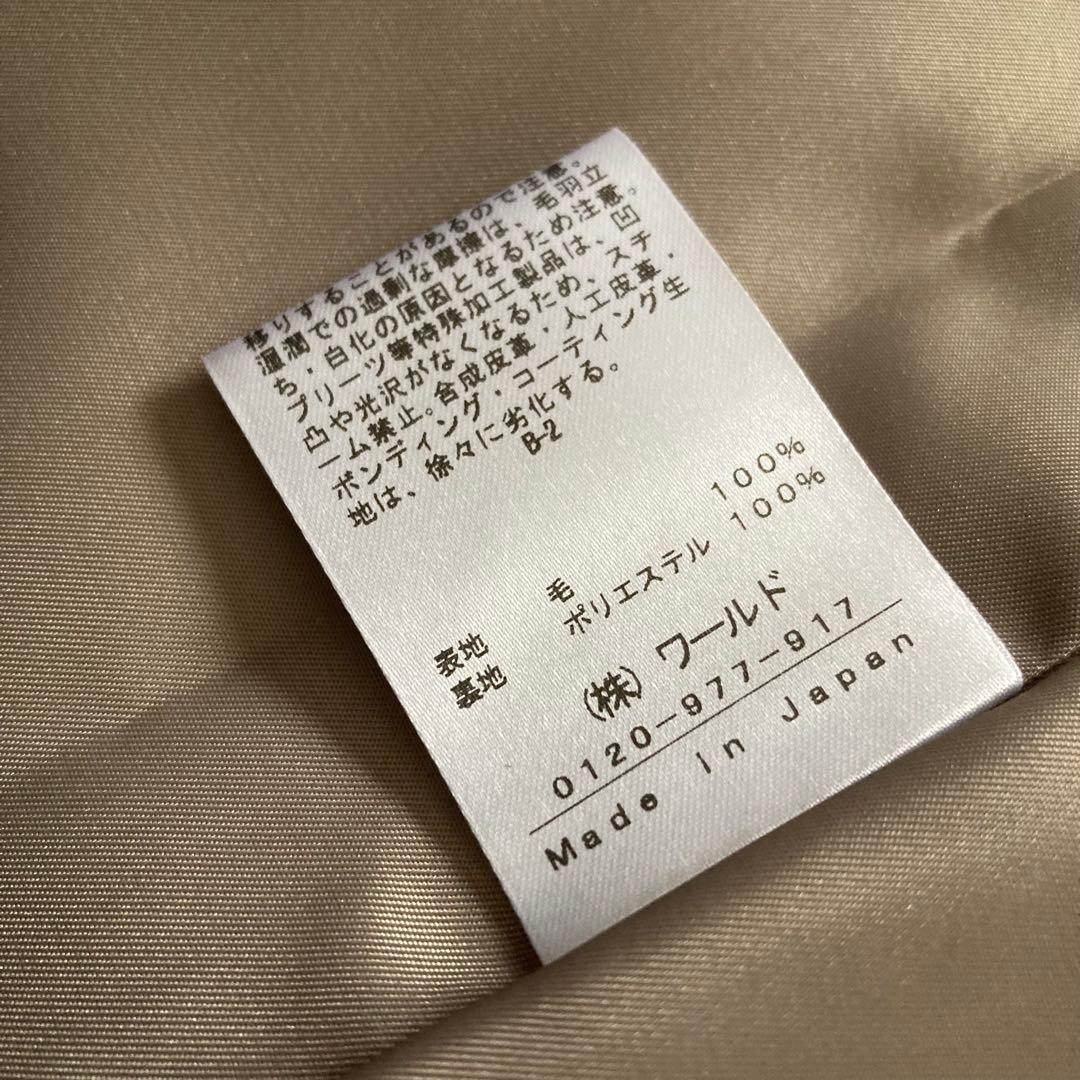 移りすることがあるので注意。
湿潤での過剰な摩擦は、毛羽立
ち・白化の原因となるため注意。
プリーツ等特殊加工製品は、凹
凸や光沢がなくなるため、スチ
ーム禁止。合成皮革・人工皮革・
ボンディング・コーティング生
地は、徐々に劣化する。
B-2
表地 毛 100%
裏地 ポリエステル 100%
(株) ワールド
0120-977-917
Made in Japan